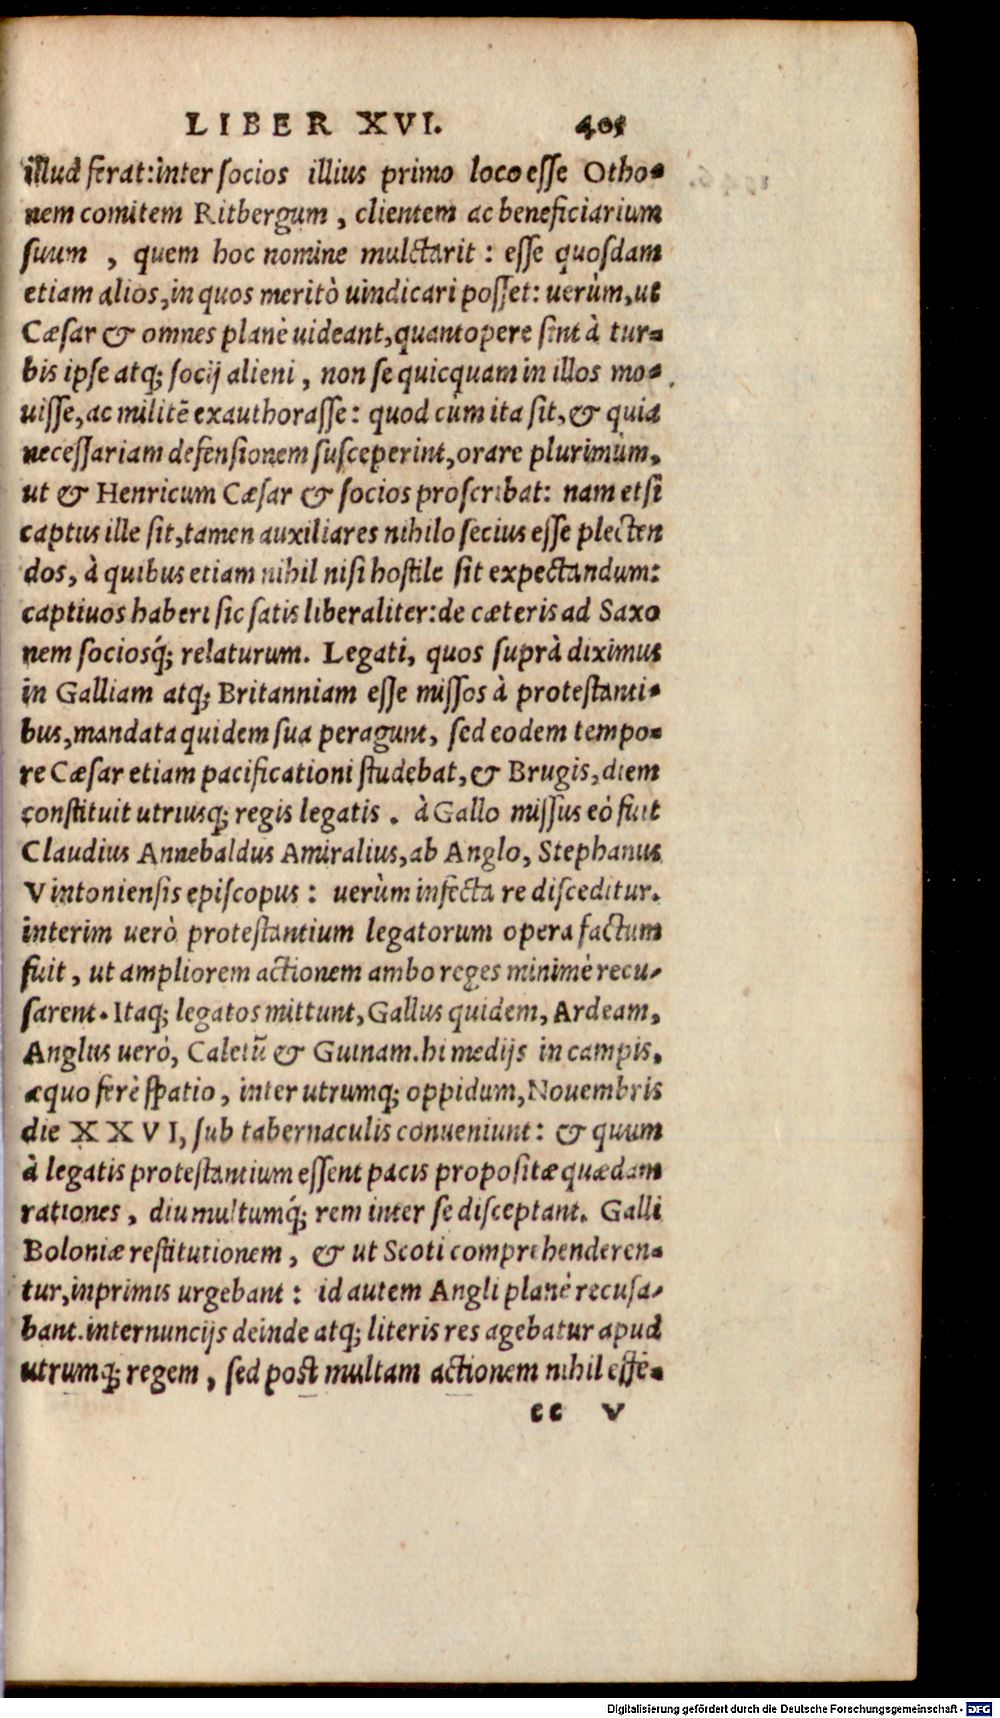 LIBER XVI. 405
illud ferat: inter socios illius primo loco esse Otho-
nem comitem Ritbergum, clientem ac beneficiarium
suum, quem hoc nomine mulctarit: esse quosdam
etiam alios, in quos meritò uindicari posset: uerùm, ut
Cæsar & omnes planè uideant, quantopere sint à tur-
bis ipse atq; socij alieni, non se quicquam in illos mo-
uisse, ac militē exauthorasse: quod cùm ita sit, & quia
necessariam defensionem susceperint, orare plurimùm,
ut & Henricum Cæsar & socios proscribat: nam etsi
captus ille sit, tamen auxiliares nihilo secius esse plecten
dos, à quibus etiam nihil nisi hostile sit expectandum:
captiuos haberi sic satis liberaliter: de cæteris ad Saxo
nem sociosq́; relaturum. Legati, quos suprà diximus
in Galliam atq; Britanniam esse missos à protestanti-
bus, mandata quidem sua peragunt, sed eodem tempo-
re Cæsar etiam pacificationi studebat, & Brugis, diem
constituit utriusq; regis legatis. à Gallo missus eò fuit
Claudius Annebaldus Amiralius, ab Anglo, Stephanus
Vintoniensis episcopus: uerùm infecta re disceditur.
interim uerò protestantium legatorum opera factum
fuit, ut ampliorem actionem ambo reges minimè recu-
sarent. Itaq; legatos mittunt, Gallus quidem, Ardeam,
Anglus uerò, Caletū & Guinam. hi medijs in campis,
æquo ferè spatio, inter utrumq; oppidum, Nouembris
die XXVI, sub tabernaculis conueniunt: & quum
à legatis protestantium essent pacis propositæ quædam
rationes, diu multumq́; rem inter se disceptant. Galli
Boloniæ restitutionem, & ut Scoti comprehenderen-
tur, inprimis urgebant: id autem Angli planè recusa-
bant. internuncijs deinde atq; literis res agebatur apud
utrumq; regem, sed post multam actionem nihil effe-
ee v
Digitalisierung gefördert durch die Deutsche Forschungsgemeinschaft - DFG